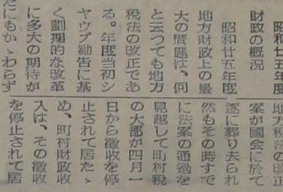 昭和廿五年度
財政の概況
昭和廿五年度
地方財政上の最
大の問題は、何
と云つても地方
税法の改正であ
る。年度当初シ
ヤウプ勧告に基
く劃期的な改革
に多大の期待が
たにもかゝわらず
地方税法の改正
案が國会に於て
遂に葬り去られ
然もその時すで
に法案の通過を
見越して町村税
の大部が四月一
日から徴收を停
止されて居たゝ
め、町村財政收
入は、その徴收
を停止されて居